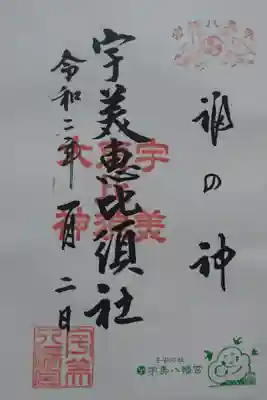 福の神
宇美恵比須社
令和二年一月二日
宇美
大神
宇美八幡宮